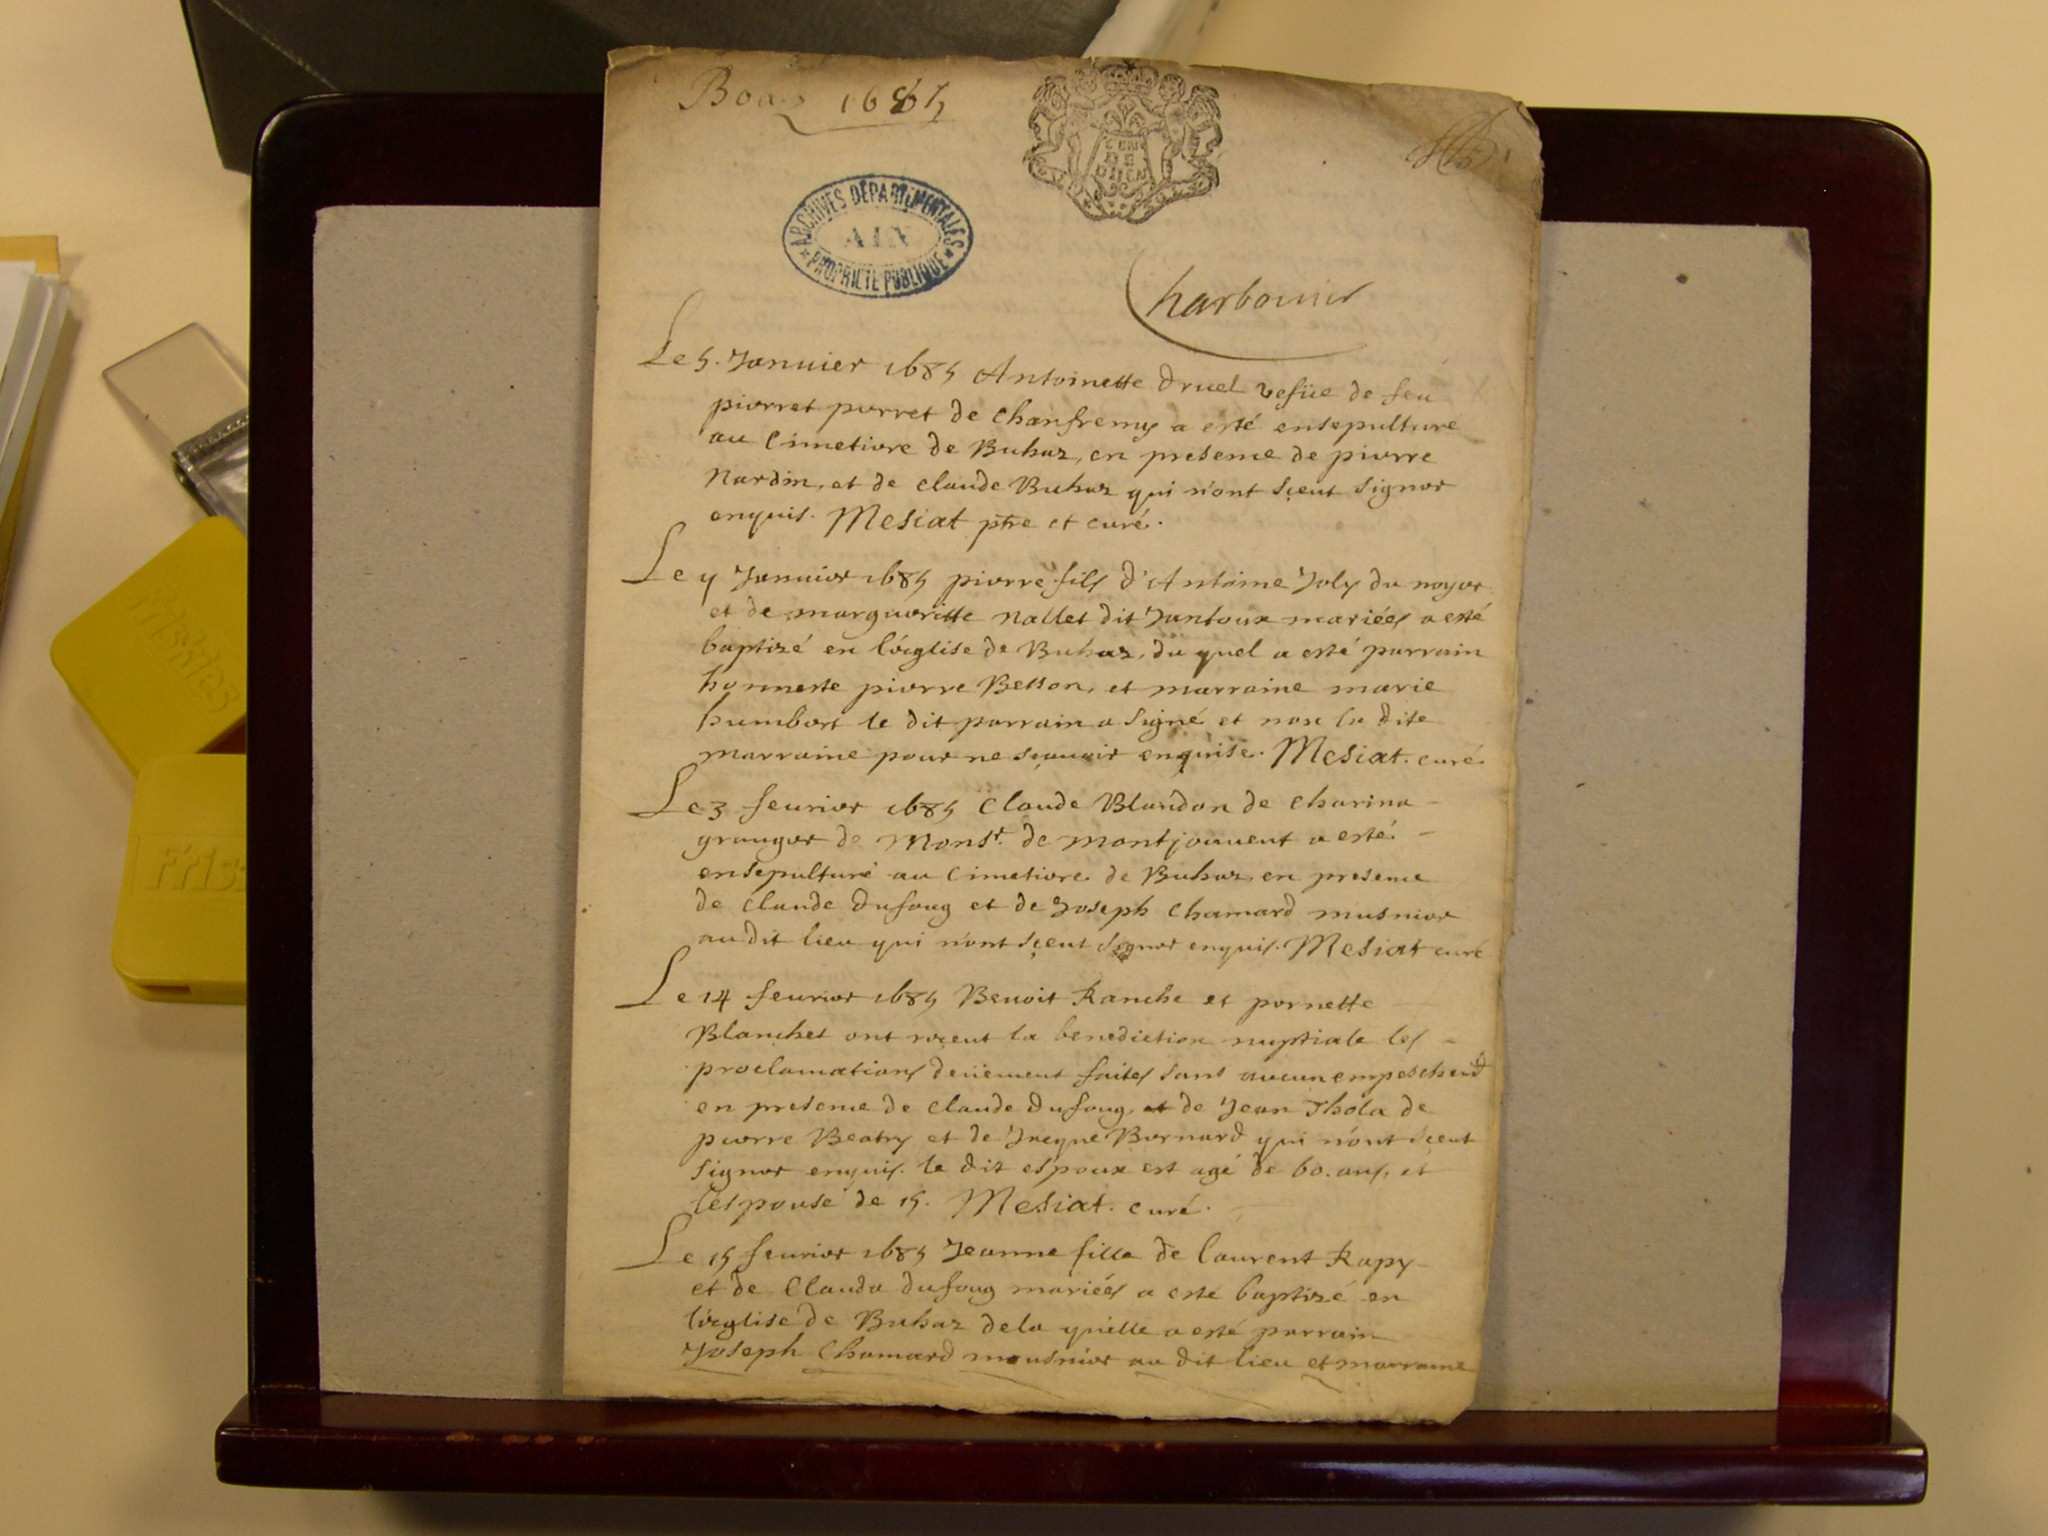 Boaz 1685
GEN
DE
DIION
ARCHIVES DÉPARTEMENTALES
AIN
PROPRIÉTÉ PUBLIQUE
Charbonier
Le 5. Januier 1685 Antoinette Druel vefüe de feu
pierret perret de Chanfremy a esté ensepulturé
au Cimetiere de Buhaz, en presence de pierre
Nardin, et de claude Buhaz qui n'ont sçeut signer
enquis. Mesiat ptre et curé.
Le y Januier 1685 pierre fils d'Antoine Joly du noyer
et de margueritte Nallet dit Jantoux mariées a esté
baptizé en l'église de Buhaz, du quel a esté parrain
honneste pierre Betton, et marraine marie
humbert le dit parrain a signé et non la dite
marraine pour ne sçauoir enquise. Mesiat. curé.
Le 3 feurier 1685 Claude Blandon de Charina
granger de Monsr. de montjouuent a esté
ensepulturé au Cimetiere de Buhaz, en presence
de Claude Dufoug et de Joseph Chamard musnier
au dit lieu qui n'ont sçeut signer enquis. Mesiat curé
Le 14 feurier 1685 Benoit Ranche et pernette
Blanchet ont reçeut la benediction nuptiale les
proclamations deüement faites sans aucun empeschemt
en presence de Claude Dufoug, et de Jean Thola de
pierre Beatry et de Jacque Bernard qui n'ont sçeut
signer enquis. le dit espoux est agé de 60. ans, et
l'espouse de 15. Mesiat. curé.
Le 15 feurier 1685 Jeanne fille de laurent Rapy
et de Clauda dufoug mariées a esté baptizé en
l'église de Buhaz de la quelle a esté parrain
Joseph Chamard mousnier au dit lieu et marraine
friskies
friskies